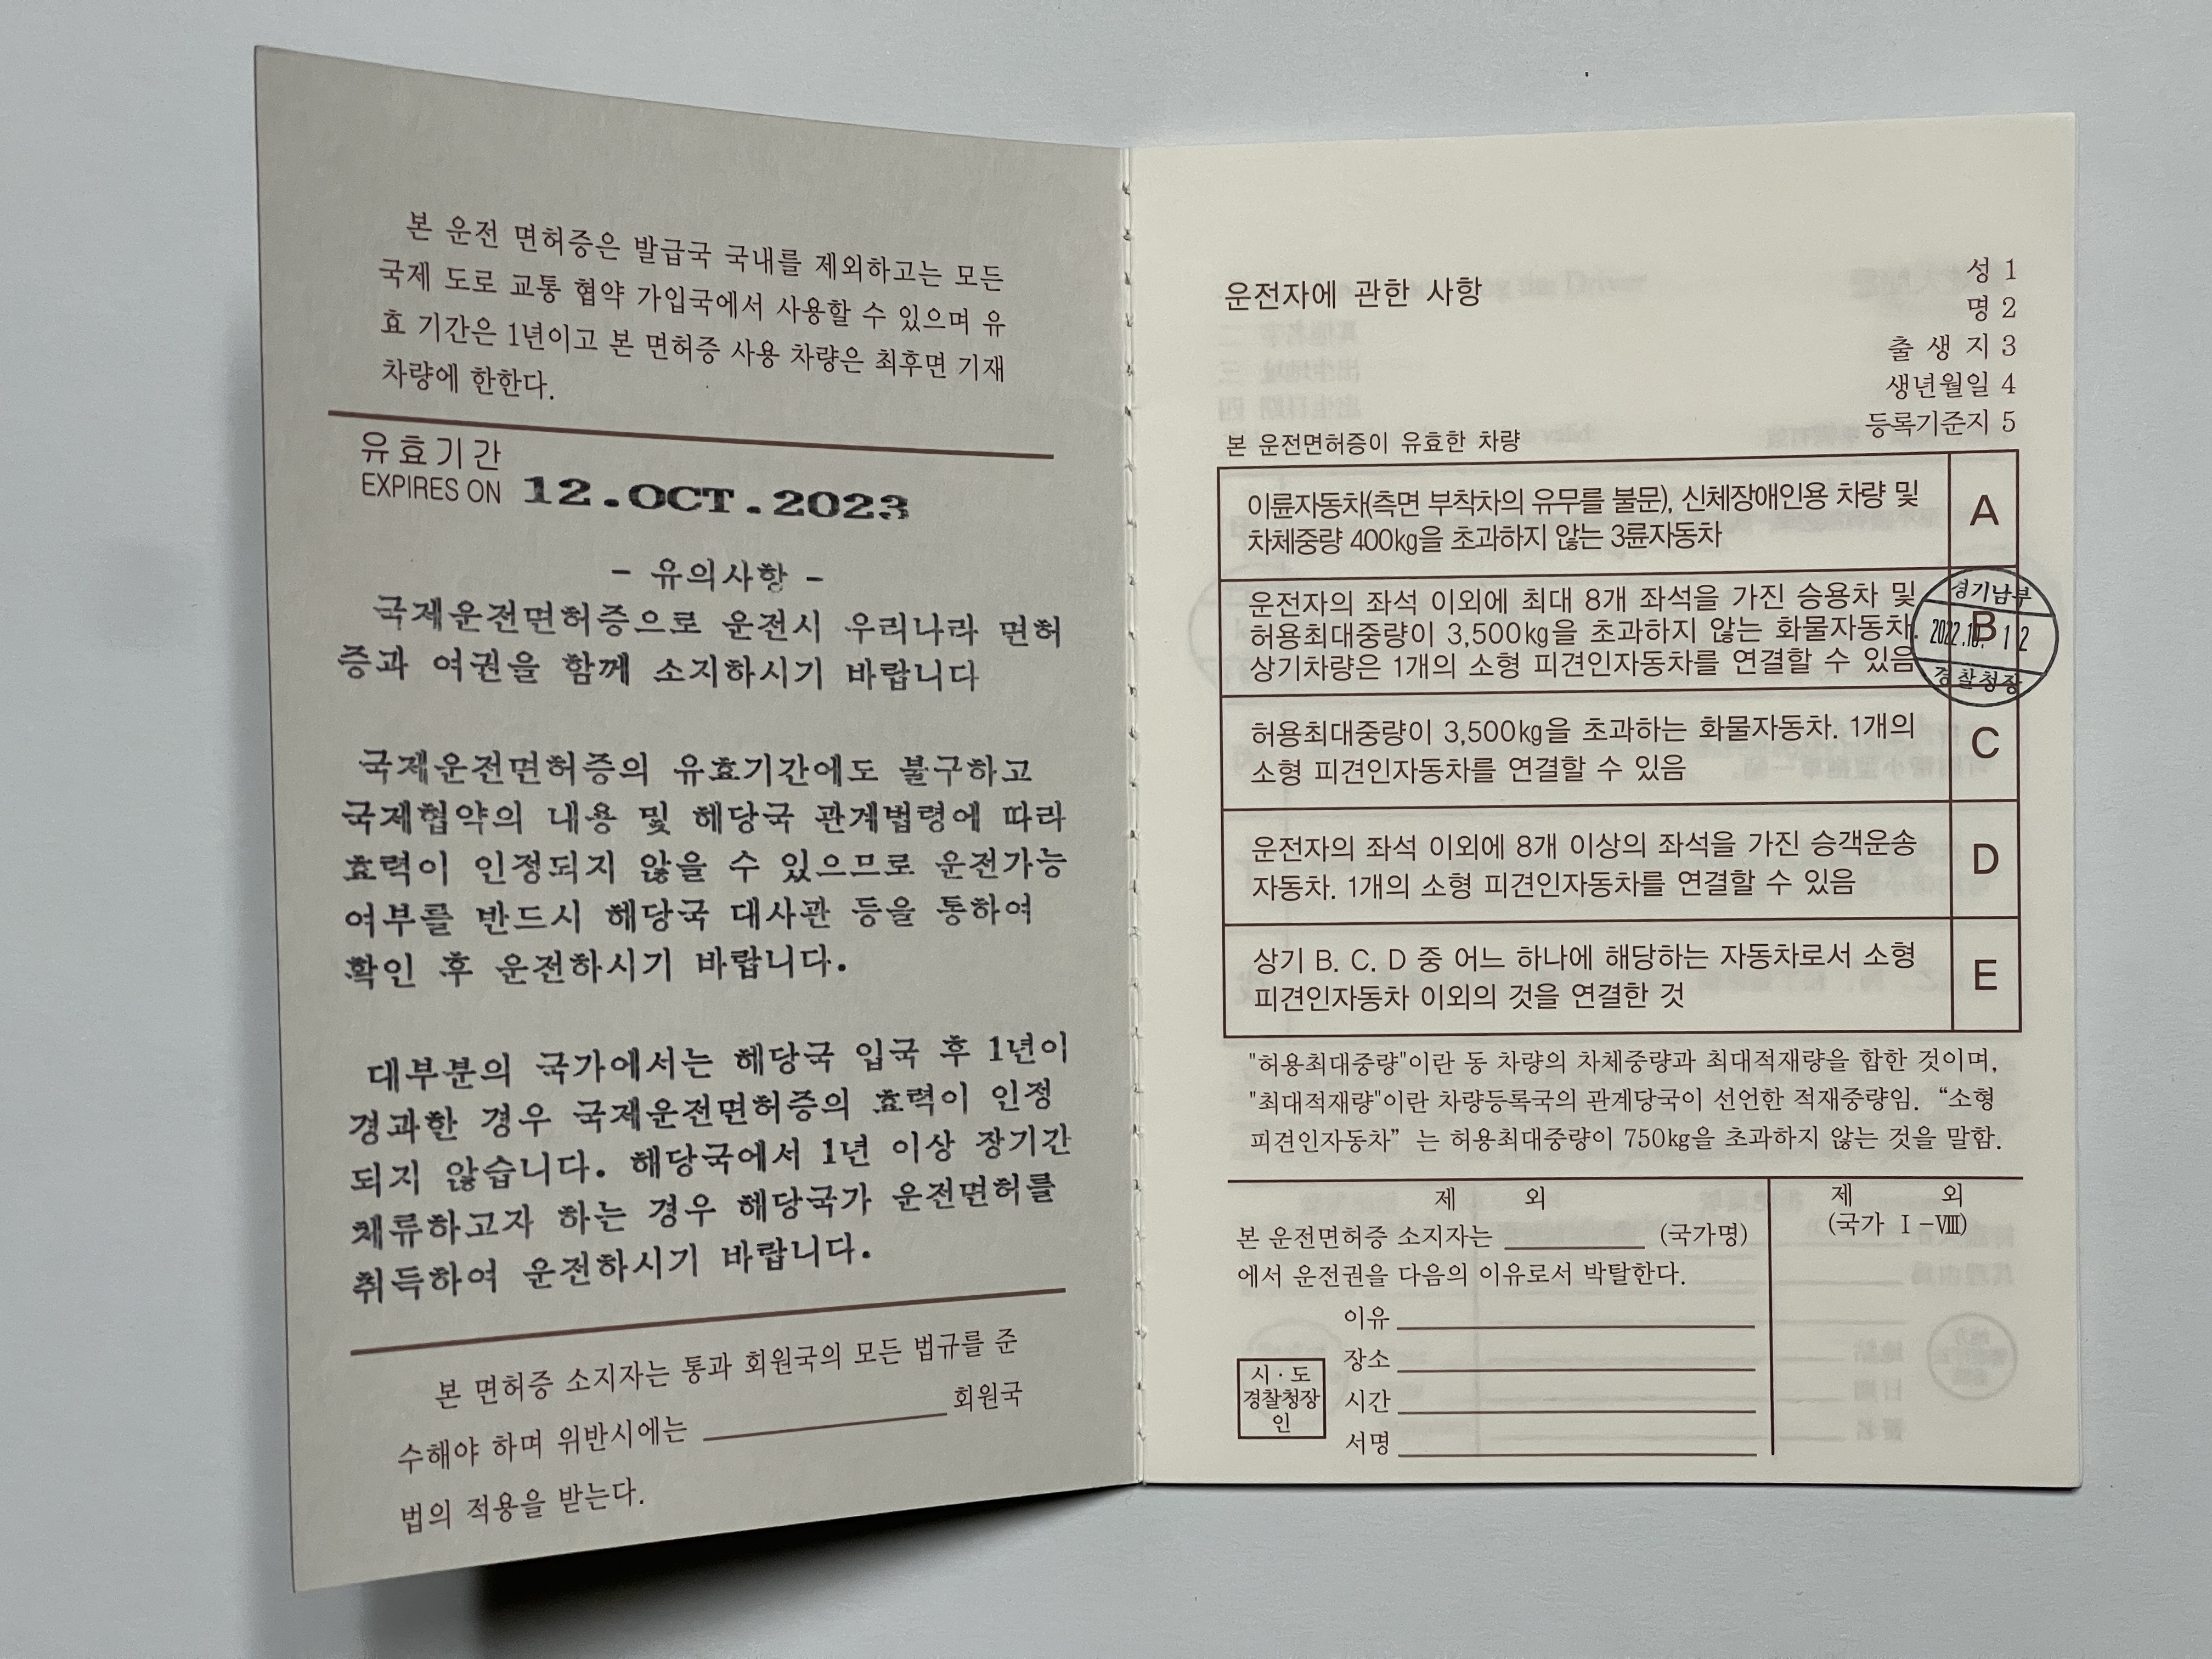 본 운전 면허증은 발급국 국내를 제외하고는 모든
국제 도로 교통 협약 가입국에서 사용할 수 있으며 유
효 기간은 1년이고 본 면허증 사용 차량은 최후면 기재
차량에 한한다.
유효기간
EXPIRES ON 12.OCT.2023
- 유의사항 -
국제운전면허증으로 운전시 우리나라 면허
증과 여권을 함께 소지하시기 바랍니다
국제운전면허증의 유효기간에도 불구하고
국제협약의 내용 및 해당국 관계법령에 따라
효력이 인정되지 않을 수 있으므로 운전가능
여부를 반드시 해당국 대사관 등을 통하여
확인 후 운전하시기 바랍니다.
대부분의 국가에서는 해당국 입국 후 1년이
경과한 경우 국제운전면허증의 효력이 인정
되지 않습니다. 해당국에서 1년 이상 장기간
체류하고자 하는 경우 해당국가 운전면허를
취득하여 운전하시기 바랍니다.
본 면허증 소지자는 통과 회원국의 모든 법규를 준
수해야 하며 위반시에는 회원국
법의 적용을 받는다.
운전자에 관한 사항
성 1
명 2
출 생 지 3
생년월일 4
등록기준지 5
본 운전면허증이 유효한 차량
이륜자동차(측면 부착차의 유무를 불문), 신체장애인용 차량 및
차체중량 400kg을 초과하지 않는 3륜자동차
A
운전자의 좌석 이외에 최대 8개 좌석을 가진 승용차 및
허용최대중량이 3,500kg을 초과하지 않는 화물자동차.
상기차량은 1개의 소형 피견인자동차를 연결할 수 있음
B
경기남부
2022.10. 12
경찰청장
허용최대중량이 3,500kg을 초과하는 화물자동차. 1개의
소형 피견인자동차를 연결할 수 있음
C
운전자의 좌석 이외에 8개 이상의 좌석을 가진 승객운송
자동차. 1개의 소형 피견인자동차를 연결할 수 있음
D
상기 B. C. D 중 어느 하나에 해당하는 자동차로서 소형
피견인자동차 이외의 것을 연결한 것
E
"허용최대중량"이란 동 차량의 차체중량과 최대적재량을 합한 것이며,
"최대적재량"이란 차량등록국의 관계당국이 선언한 적재중량임. “소형
피견인자동차” 는 허용최대중량이 750kg을 초과하지 않는 것을 말함.
제 외
본 운전면허증 소지자는 (국가명)
에서 운전권을 다음의 이유로서 박탈한다.
이유
장소
시간
서명
시·도
경찰청장
인
제 외
(국가 Ⅰ-Ⅷ)